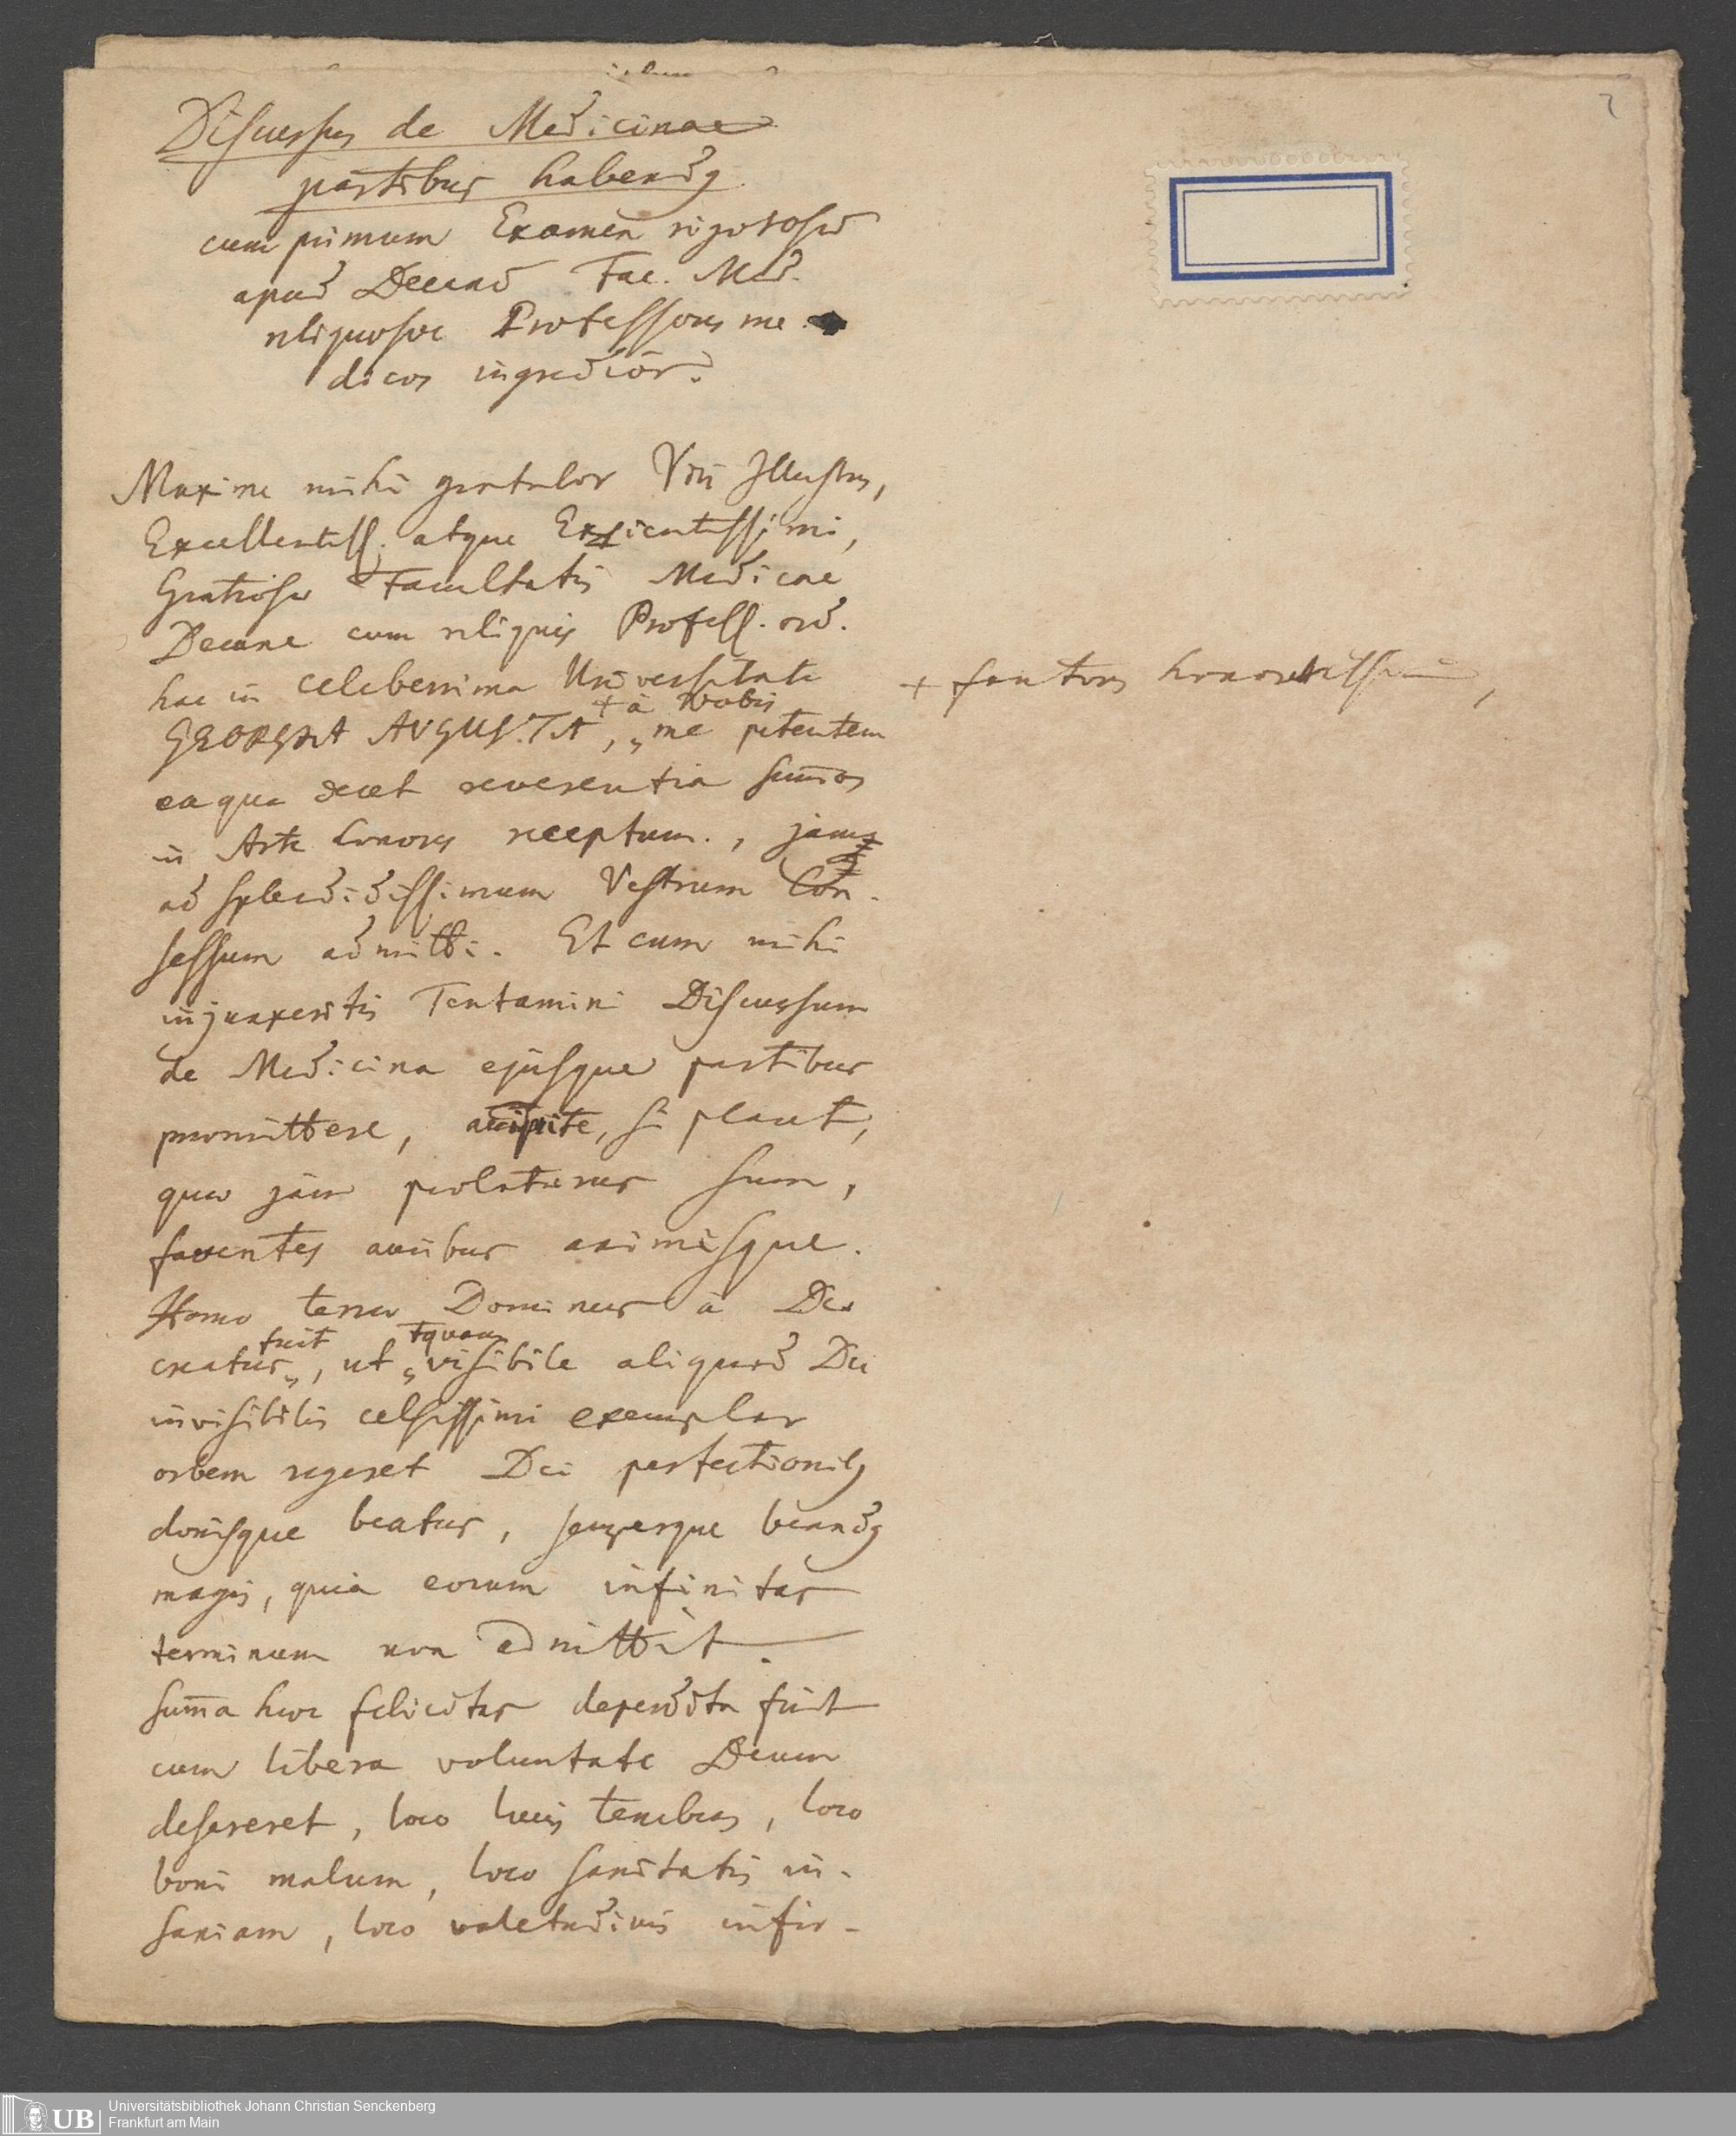 Discursus de Medicinae
partibus habendus
cum primum Examen rigorosum
apud Decanum Fac. Med.
reliquosve Professores me-
dicos ingredior.
Maxime mihi gratulor Viri Illustres,
Excellentiss. atque Expientissimi,
Gratiosae Facultatis Medicae
Decane cum reliquis Profess. ord.
hac in celeberrima Universitate
+ fautores honoratissimi,
+ à Vobis
GEORGIA AUGUSTA, „ me petentem
ea qua decet reverentia summos
in Arte honores receptum., jam
ad splendidissimum Vestrum Con-
sessum admitti. Et cum mihi
injunxeritis Tentamini Discursum
de Medicina ejusque partibus
promittere, accipite, si placet,
quae jam prolaturus sum,
faventes auribus animisque.
Homo terrae Dominus à Deo
fuit tquam
creatus„, ut „ visibile aliquod Dei
invisibilis celsissimi exemplar
orbem regeret Dei perfectionibus
donisque beatus, semperque beandus
magis, quia eorum infinitas
terminum non admittit.
Summa haec felicitas deperdita fuit
cum libera voluntate Deum
desereret, loco lucis tenebras, loco
boni malum, loco sanitatis in-
saniam, loco valetudinis infir-
2
UB
Universitätsbibliothek Johann Christian Senckenberg
Frankfurt am Main